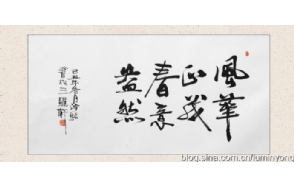 風華
正茂
春意
盎然
己丑年春月
blog.sina.com.cn/luminyong